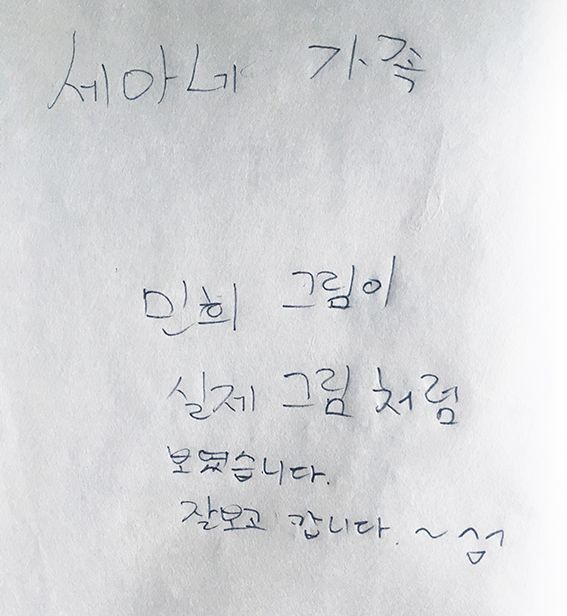 세아네 가족
민희 그림이
실제 그림 처럼
보였습니다.
잘보고 갑니다. ~